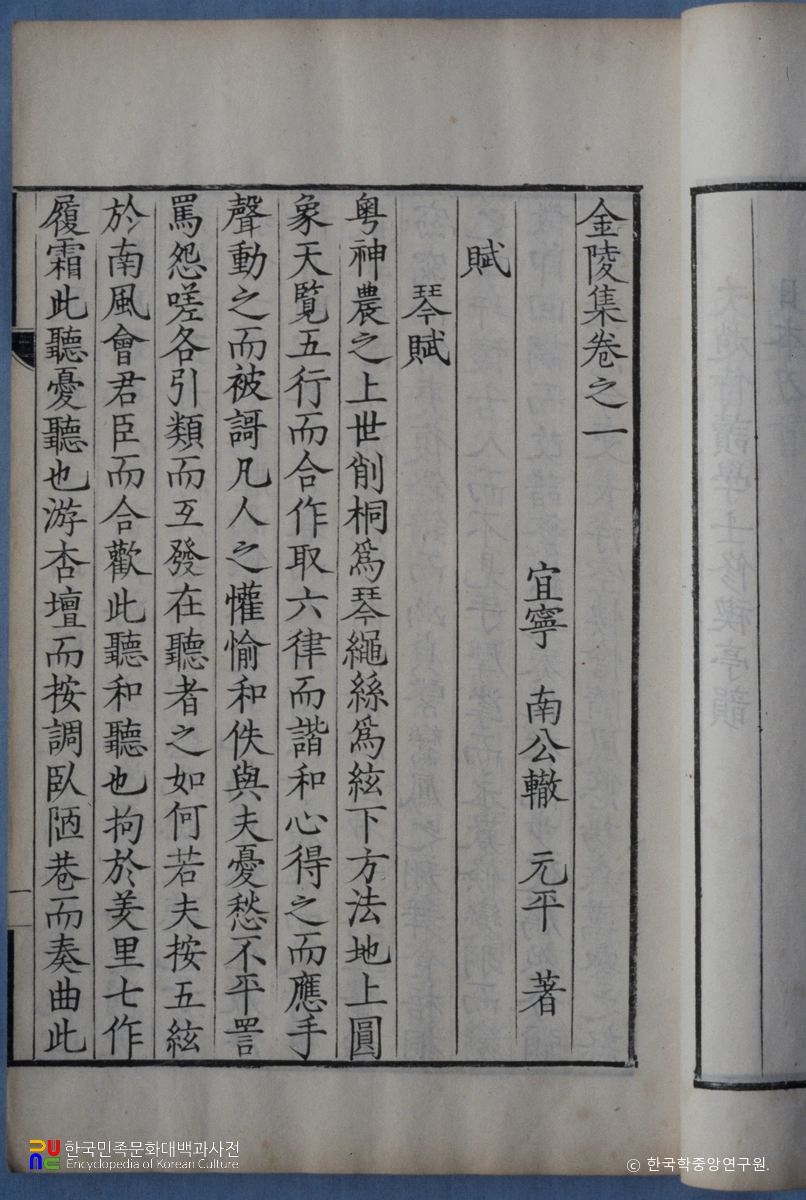 金陵集卷之一
宜寧 南公轍 元平 著
賦
琴賦
粤神農之上世削桐爲琴繩絲爲絃下方法地上圓
象天覽五行而合作取六律而諧和心得之而應手
聲動之而被謌凡人之懽愉和佚與夫憂愁不平詈
罵怨嗟各引類而互發在聽者之如何若夫按五絃
於南風會君臣而合歡此聽和聽也拘於羑里七作
履霜此聽憂聽也游杏壇而按調臥陋巷而奏曲此
一
한국민족문화대백과사전
Encyclopedia of Korean Culture
© 한국학중앙연구원.